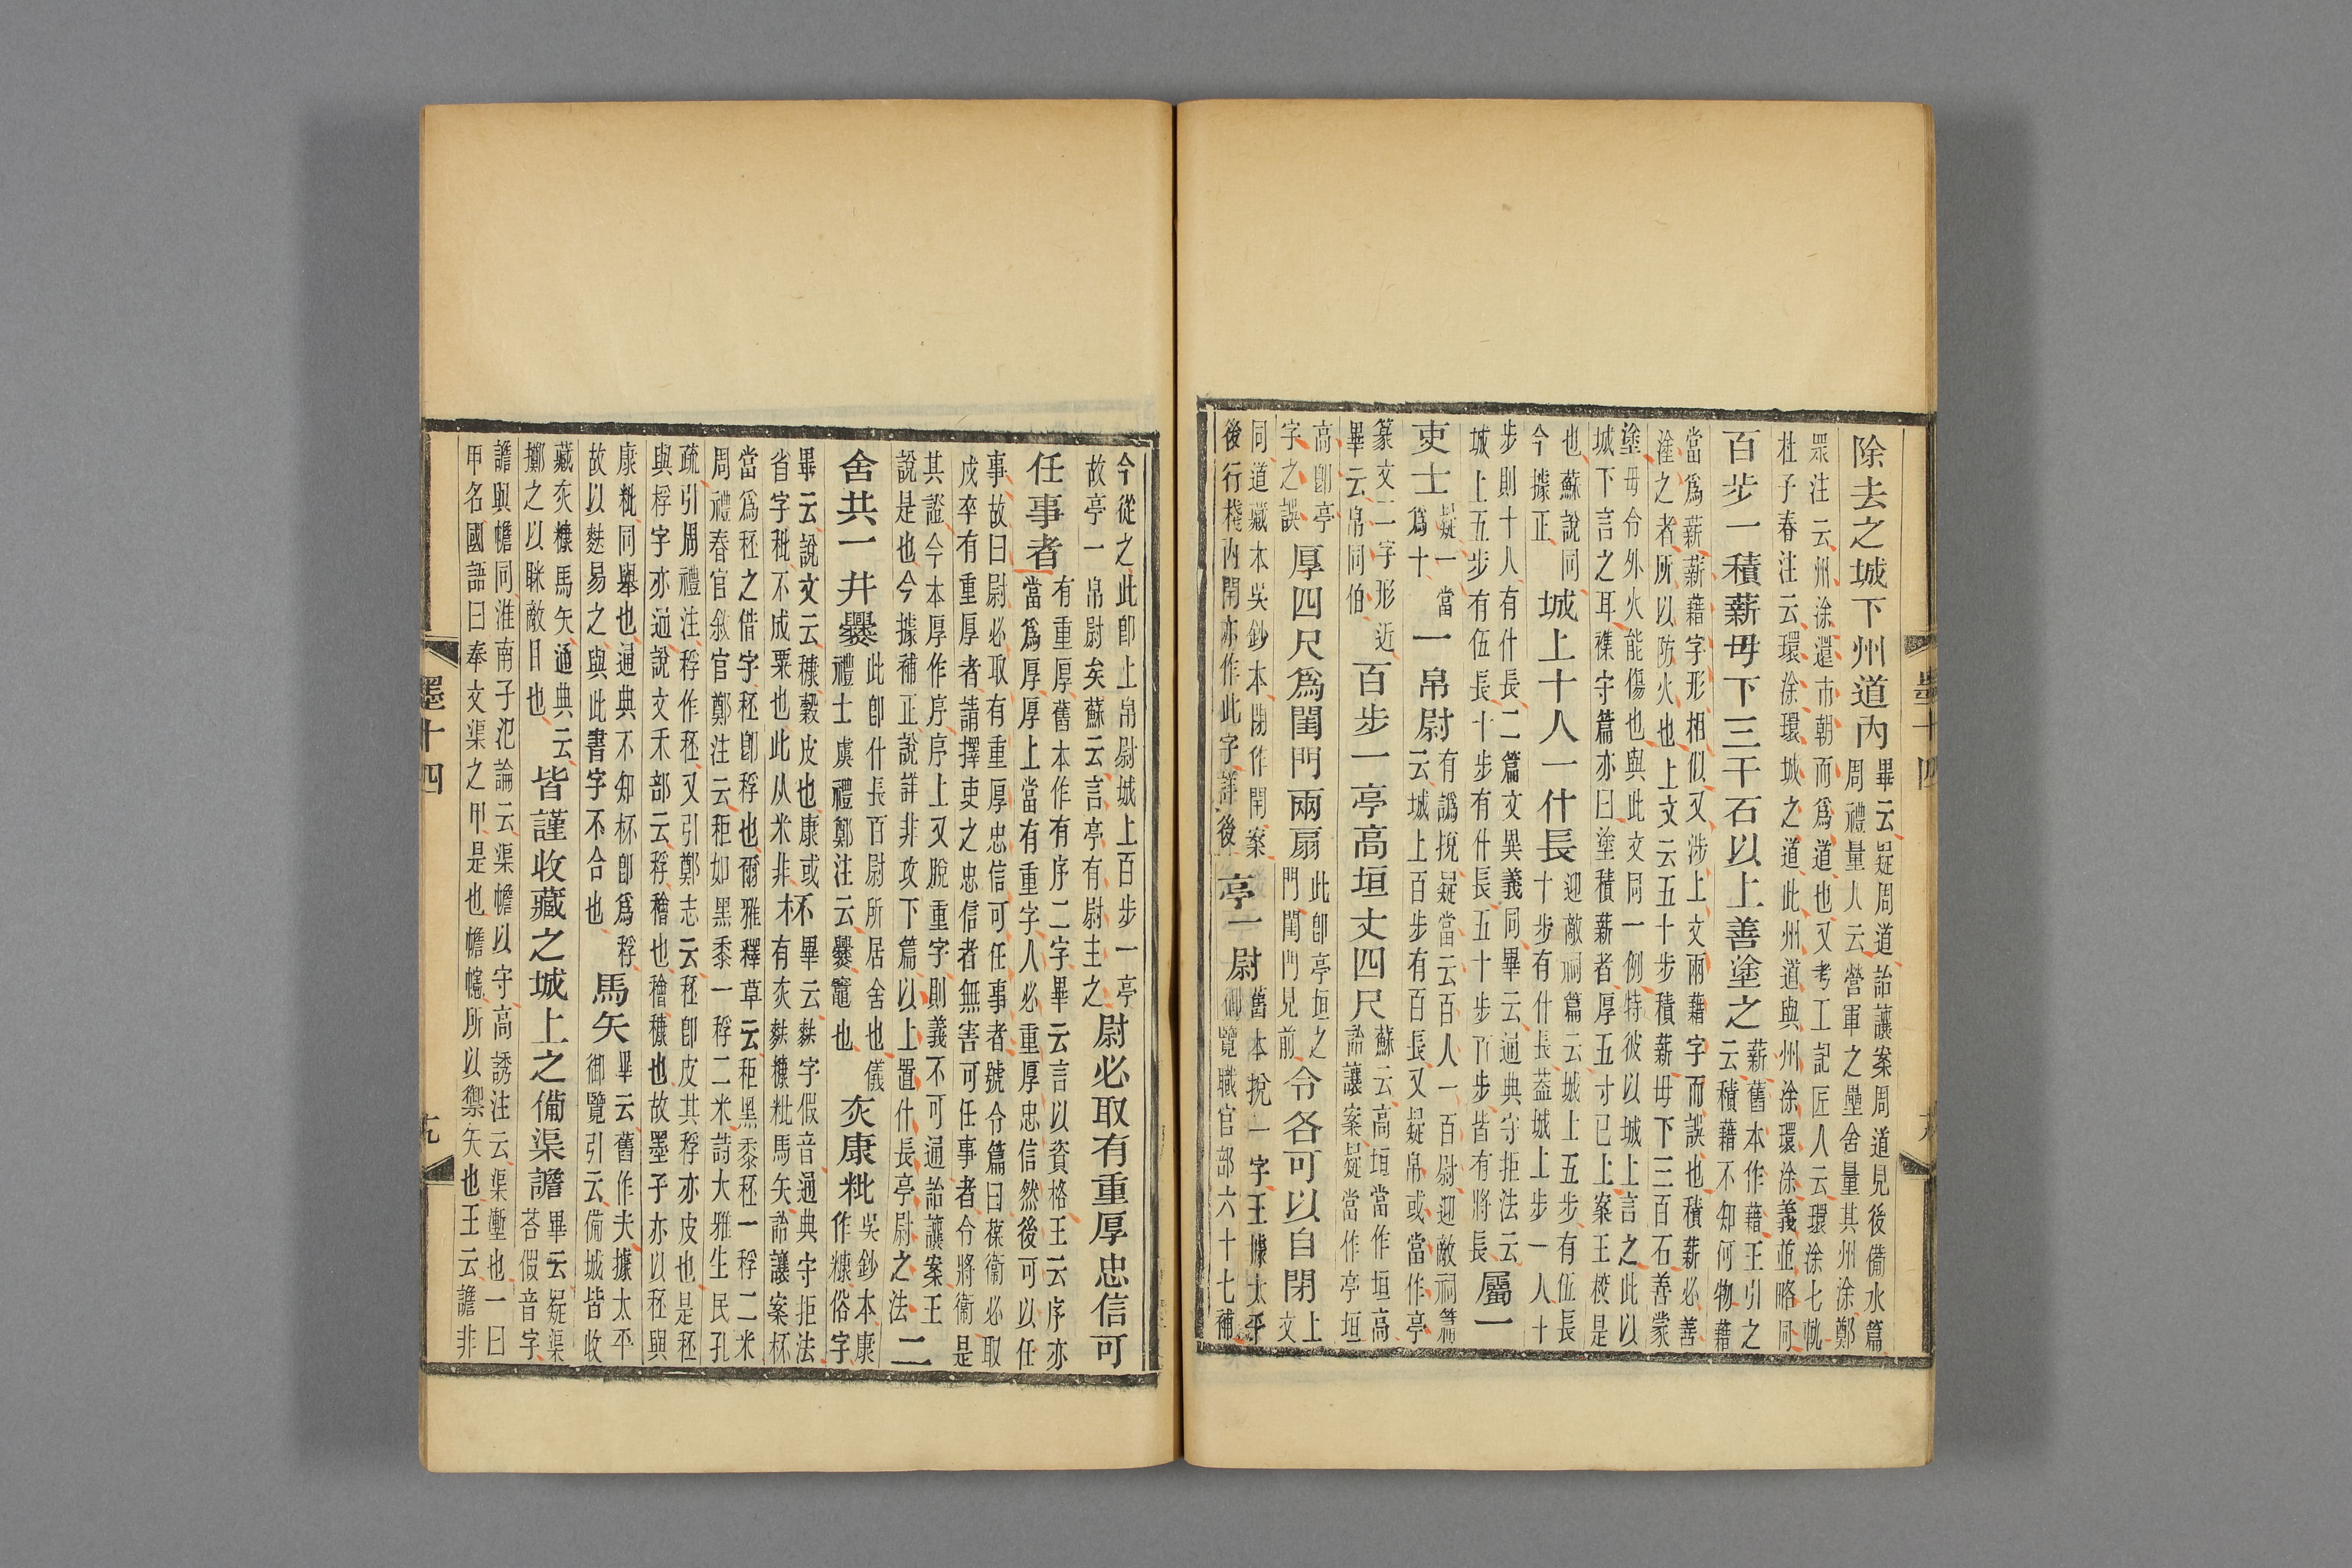 除去之城下州道內畢云疑周道詒讓案周道見後備水篇
周禮量人云營軍之壘舍量其州涂鄭
眾注云州涂還市朝而爲道也又考工記匠人云環涂七軌
杜子春注云環涂環城之道此州道與州涂環涂義並略同
百步一積薪毋下三千石以上善塗之薪舊本作藉王引之
云積藉不知何物藉
當爲薪薪藉字形相似又涉上文兩藉字而誤也積薪必善
塗之者所以防火也上文云五十步積薪毋下三百石善蒙
塗毋令外火能傷也與此文同一例特彼以城上言之此以
城下言之耳襍守篇亦曰塗積薪者厚五寸已上案王校是
也蘇說同
今據正城上十人一什長迎敵祠篇云城上五步有伍長
十步有什長葢城上步一人十
步則十人有什長二篇文異義同畢云通典守拒法云
城上五步有伍長十步有什長五十步百步皆有將長屬一
吏士疑一當
爲十一帛尉有譌挩疑當云百人一百尉迎敵祠篇
云城上百步有百長又疑帛或當作亭
篆文二字形近
畢云帛同伯百步一亭高垣丈四尺蘇云高垣當作垣高
詒讓案疑當作亭垣
高卽亭
字之誤厚四尺爲閨門兩扇此卽亭垣之
門閨門見前令各可以自閉上
文
同道藏本吳鈔本閉作閈案
後行棧內閈亦作此字詳後亭一尉舊本挩一字王據太平
御覽職官部六十七補
墨十四
今從之此卽上帛尉城上百步一亭
故亭一帛尉矣蘇云言亭有尉主之尉必取有重厚忠信可
任事者有重厚舊本作有序二字畢云言以資格王云序亦
當爲厚厚上當有重字人必重厚忠信然後可以任
事故曰尉必取有重厚忠信可任事者號令篇曰葆衞必取
戍卒有重厚者請擇吏之忠信者無害可任事者令將衞是
其證今本厚作序序上又脫重字則義不可通詒讓案王
說是也今據補正說詳非攻下篇以上置什長亭尉之法二
舍共一井爨此卽什長百尉所居舍也儀
禮士虞禮鄭注云爨竈也灰康粃吳鈔本康
作糠俗字
畢云說文云穅穀皮也康或
省字秕不成粟也此从米非杯畢云麩字假音通典守拒法
有灰麩穅粃馬矢詒讓案杯
當爲秠之借字秠卽稃也爾雅釋草云秬黑黍秠一稃二米
周禮春官敘官鄭注云秬如黑黍一稃二米詩大雅生民孔
疏引周禮注稃作秠又引鄭志云秠卽皮其稃亦皮也是秠
與稃字亦通說文禾部云稃𥢶也𥢶穅也故墨子亦以秠與
康粃同舉也通典不知杯卽爲稃
故以麩易之與此書字不合也馬矢畢云舊作夫據太平
御覽引云備城皆收
藏灰穅馬矢通典云
擲之以眯敵目也皆謹收藏之城上之備渠譫畢云疑渠
荅假音字
譫與幨同淮南子氾論云渠幨以守高誘注云渠塹也一曰
甲名國語曰奉文渠之甲是也幨幰所以禦矢也王云譫非
墨十四
九